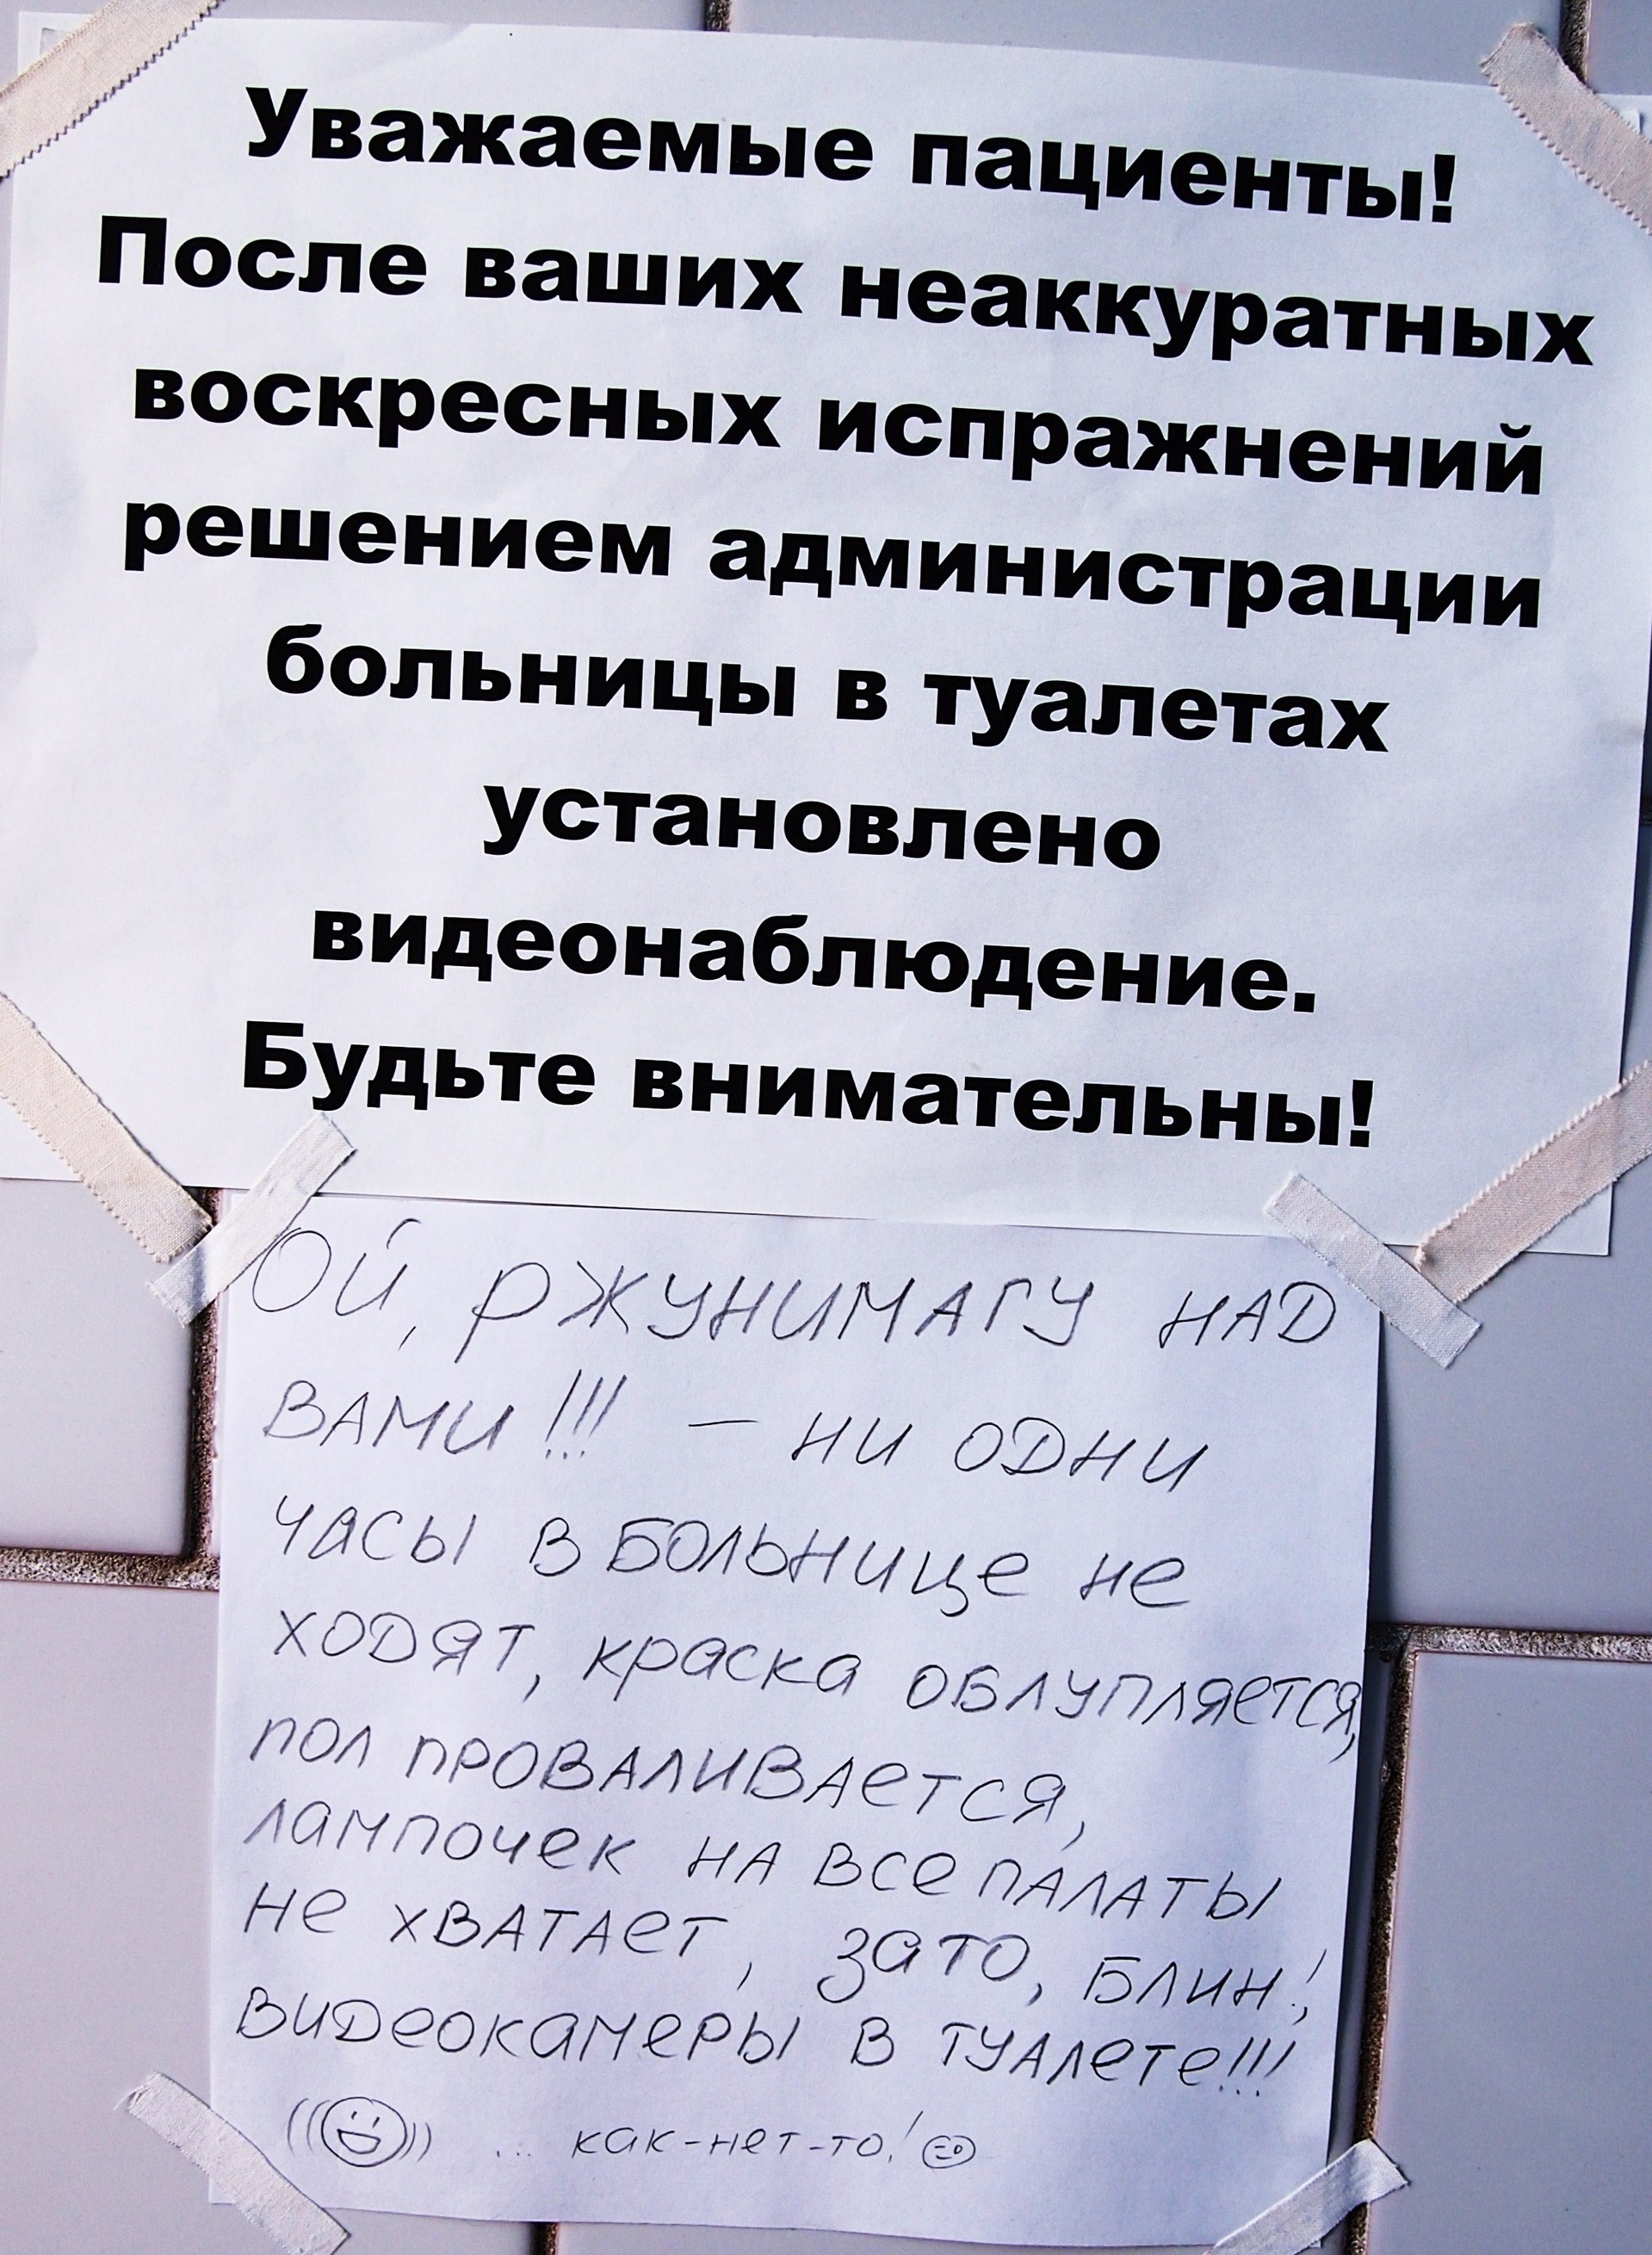 Уважаемые пациенты!
После ваших неаккуратных
воскресных испражнений
решением администрации
больницы в туалетах
установлено
видеонаблюдение.
Будьте внимательны!
Ой, РЖУНИМАГУ НАД
ВАМИ!!! — НИ ОДНИ
ЧАСЫ В БОЛЬНИЦе Не
ХОДЯТ, краска ОБЛУПЛЯеТСЯ,
ПОЛ ПРОВАЛИВАеТСЯ,
лампочек НА ВСе ПАЛАТЫ
Не ХВАТАеТ, ЗаТО, БЛИН!,
ВИДеокамеры В ТУАЛеТе!!!
... как-нет-то!